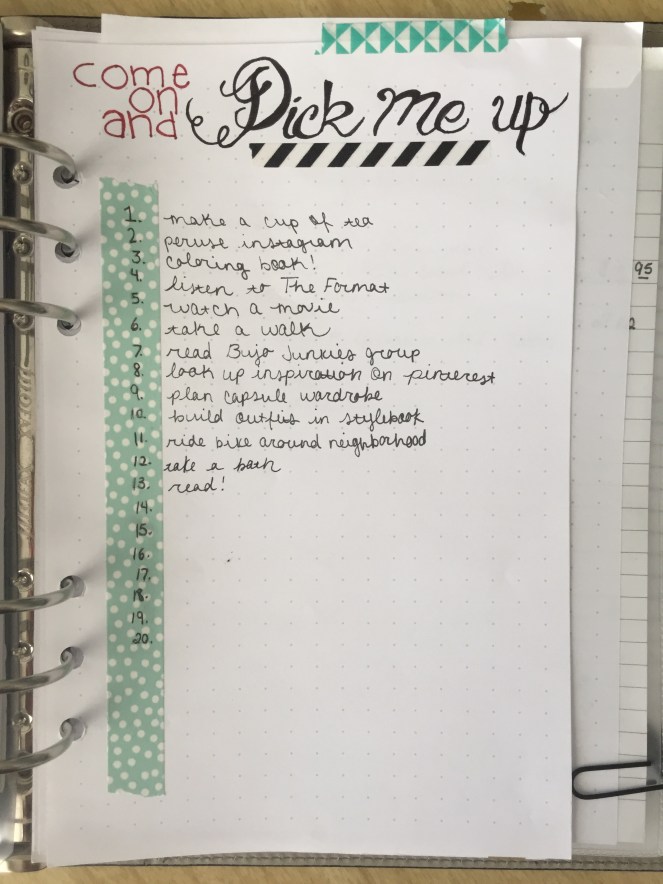 come
on
and
Pick me up
1. make a cup of tea
2. peruse instagram
3. coloring book!
4. listen to The Format
5. watch a movie
6. take a walk
7. read Bujo Junkies group
8. look up inspiration on pinterest
9. plan capsule wardrobe
10. build outfits in stylebook
11. ride bike around neighborhood
12. take a bath
13. read!
14.
15.
16.
17.
18.
19.
20.
95
2